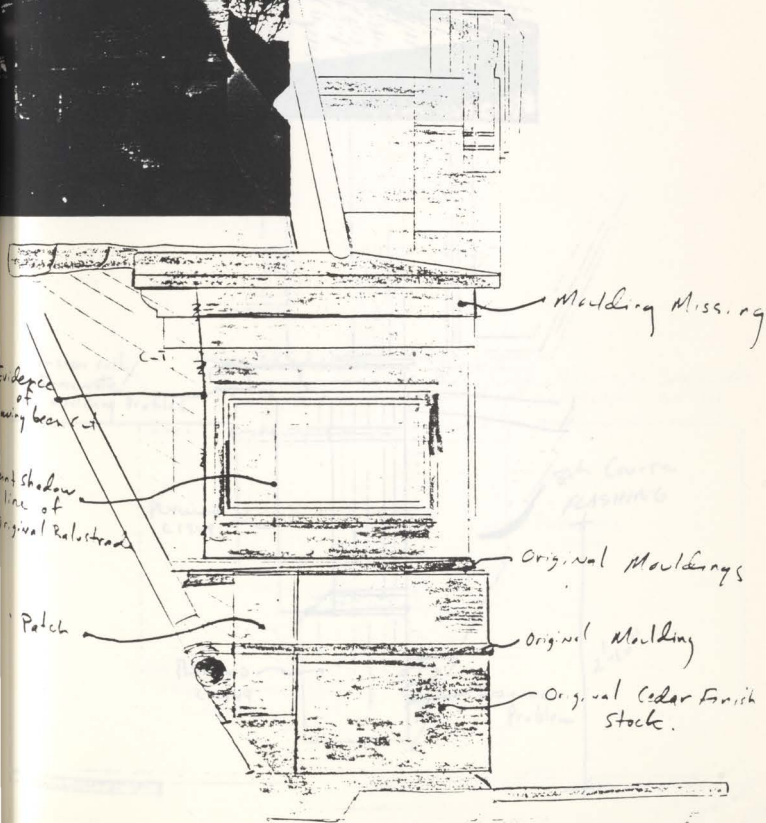 Moulding Missing
C-T
Evidence
of
having been cut
Paint Shadow
line of
Original Balustrade
Original Mouldings
Patch
Original Moulding
Original Cedar Finish
Stock.
FLASHING